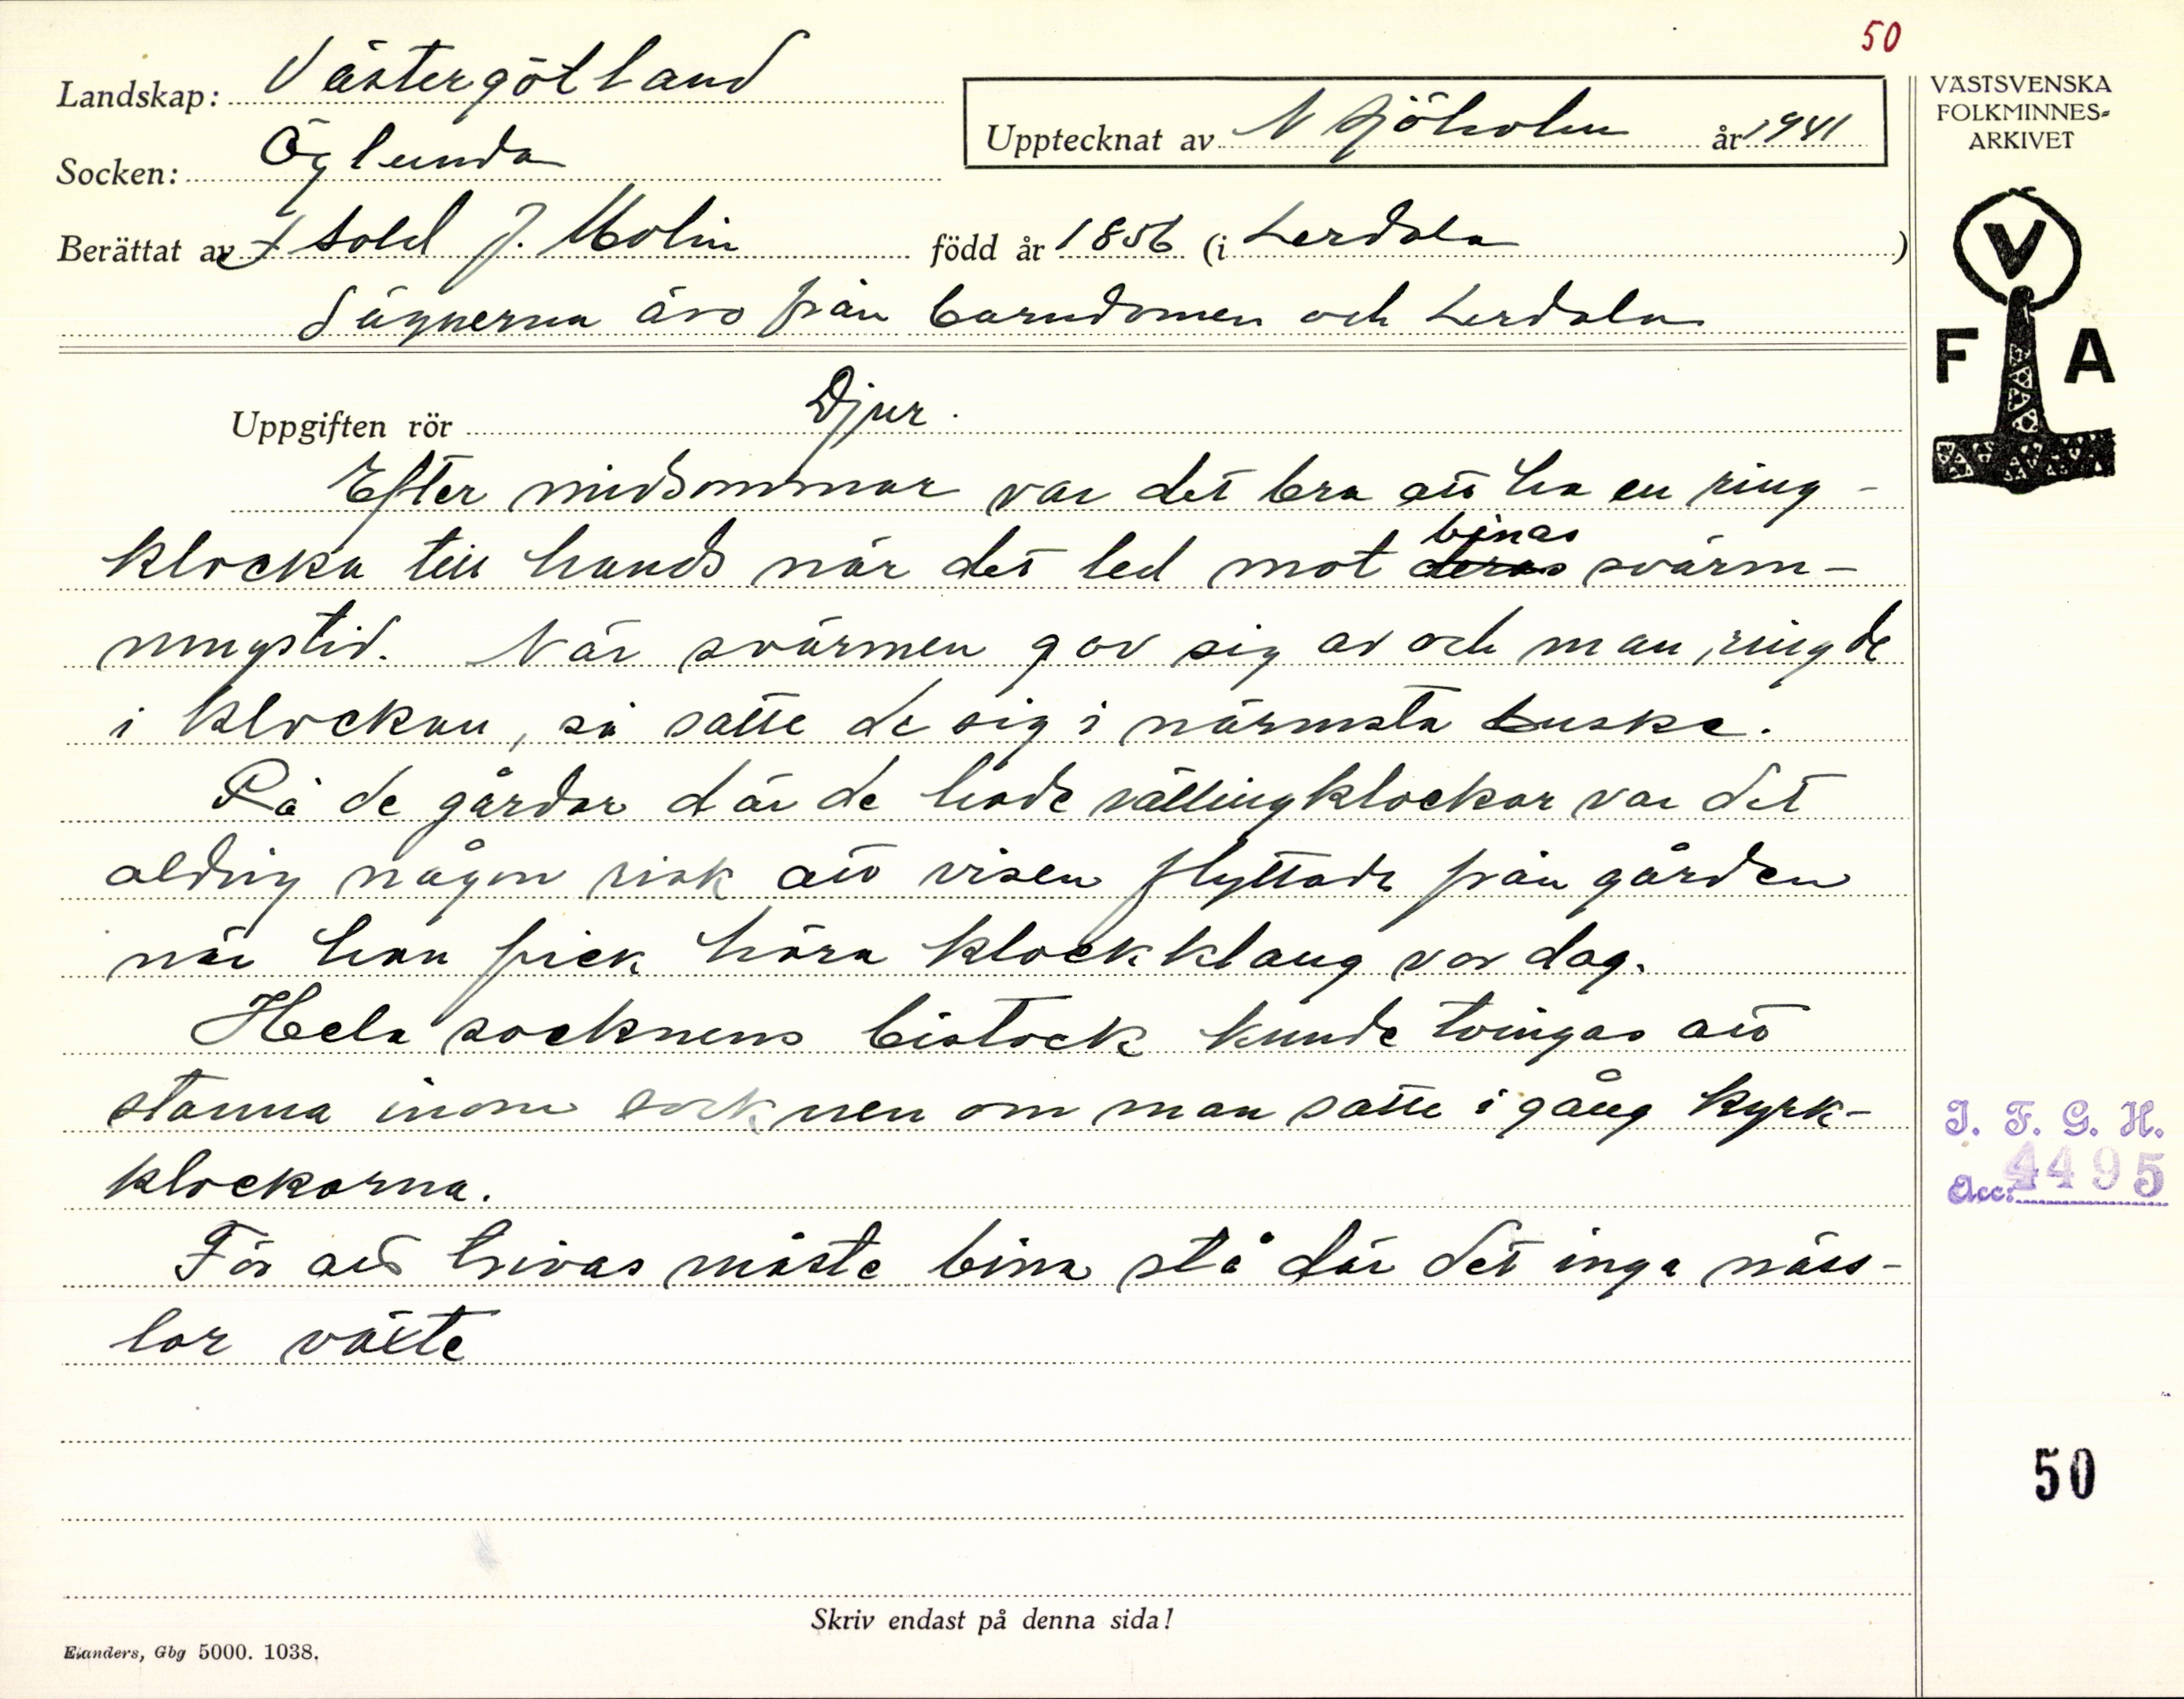 50
Landskap: Västergötland
Socken: Öglunda
Upptecknat av N Sjöholm år 1941
Berättat av f sold J. Molin född år 1856 (i Lerdala)
Sägnerna äro från barndomen och Lerdala
VÄSTSVENSKA
FOLKMINNES-
ARKIVET
V
F A
Uppgiften rör Djur.
Efter midsommar var det bra att ha en ring-
klocka till hands när det led mot deras binas svärm-
ningstid. När svärmen gav sig av och man ringde
i klockan, så satte de sig i närmsta buske.
På de gårdar där de hade vällingklockor var det
aldrig någon risk att visen flyttade från gården
när han fick höra klockklang var dag.
Hela socknens bistock kunde tvingas att
stanna inom socknen om man satte i gång kyrk-
klockorna.
För att trivas måste bina stå där det inga näss-
lor växte
I. F. G. H.
Acc: 4495
50
Skriv endast på denna sida!
Elanders, Gbg 5000. 1038.